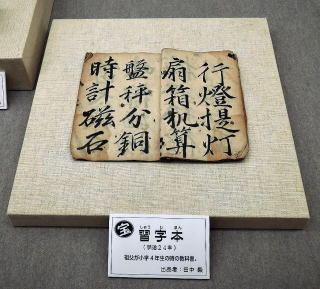 行燈提灯
扇箱机算
盤秤分銅
時計磁石
宝
しゅう じ ほん
習字本
(明治24年)
祖父が小学4年生の時の教科書。
出品者:田中